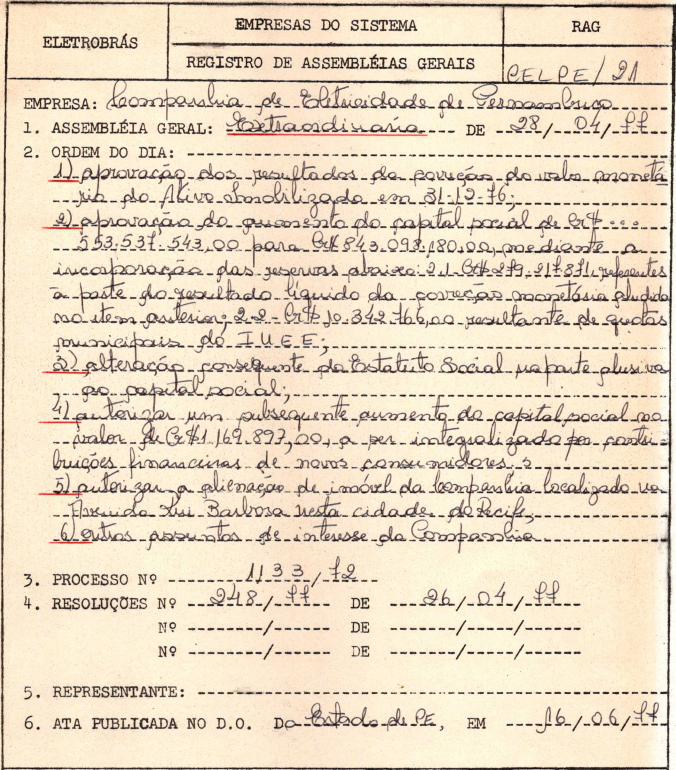 ELETROBRÁS
EMPRESAS DO SISTEMA
RAG
REGISTRO DE ASSEMBLÉIAS GERAIS
CELPE/21
EMPRESA: Companhia de Eletricidade de Pernambuco
1. ASSEMBLÉIA GERAL: Extraordinária DE 28/04/77
2. ORDEM DO DIA:
1) aprovação dos resultados da correção do valor monetá
rio do Ativo Imobilizado em 31-12-76;
2) aprovação do aumento do capital social de Cr$ ...
553.537.543,00 para Cr$ 843.098.180,00, mediante a
incorporação das reservas abaixo: 2.1 - Cr$ 279.217.871, referentes
à parte do resultado líquido da correção monetária aludida
no item anterior; 2-2 - Cr$ 10.342.766,00 resultante de quotas
municipais do IUEE;
3) alteração consequente do Estatuto Social na parte alusiva
ao capital social;
4) autorizar um subsequente aumento do capital social no
valor de Cr$ 1.169.897,00, a ser integralizado por contri-
buições financeiras de novos consumidores;
5) autorizar a alienação de imóvel da Companhia localizado na
Avenida Rui Barbosa nesta cidade do Recife;
6) outros assuntos de interesse da Companhia
3. PROCESSO Nº 1133/72
4. RESOLUÇÕES Nº 248/77 DE 26/04/77
Nº / DE / /
Nº / DE / /
5. REPRESENTANTE:
6. ATA PUBLICADA NO D.O. Do Estado de PE, EM 16/06/77